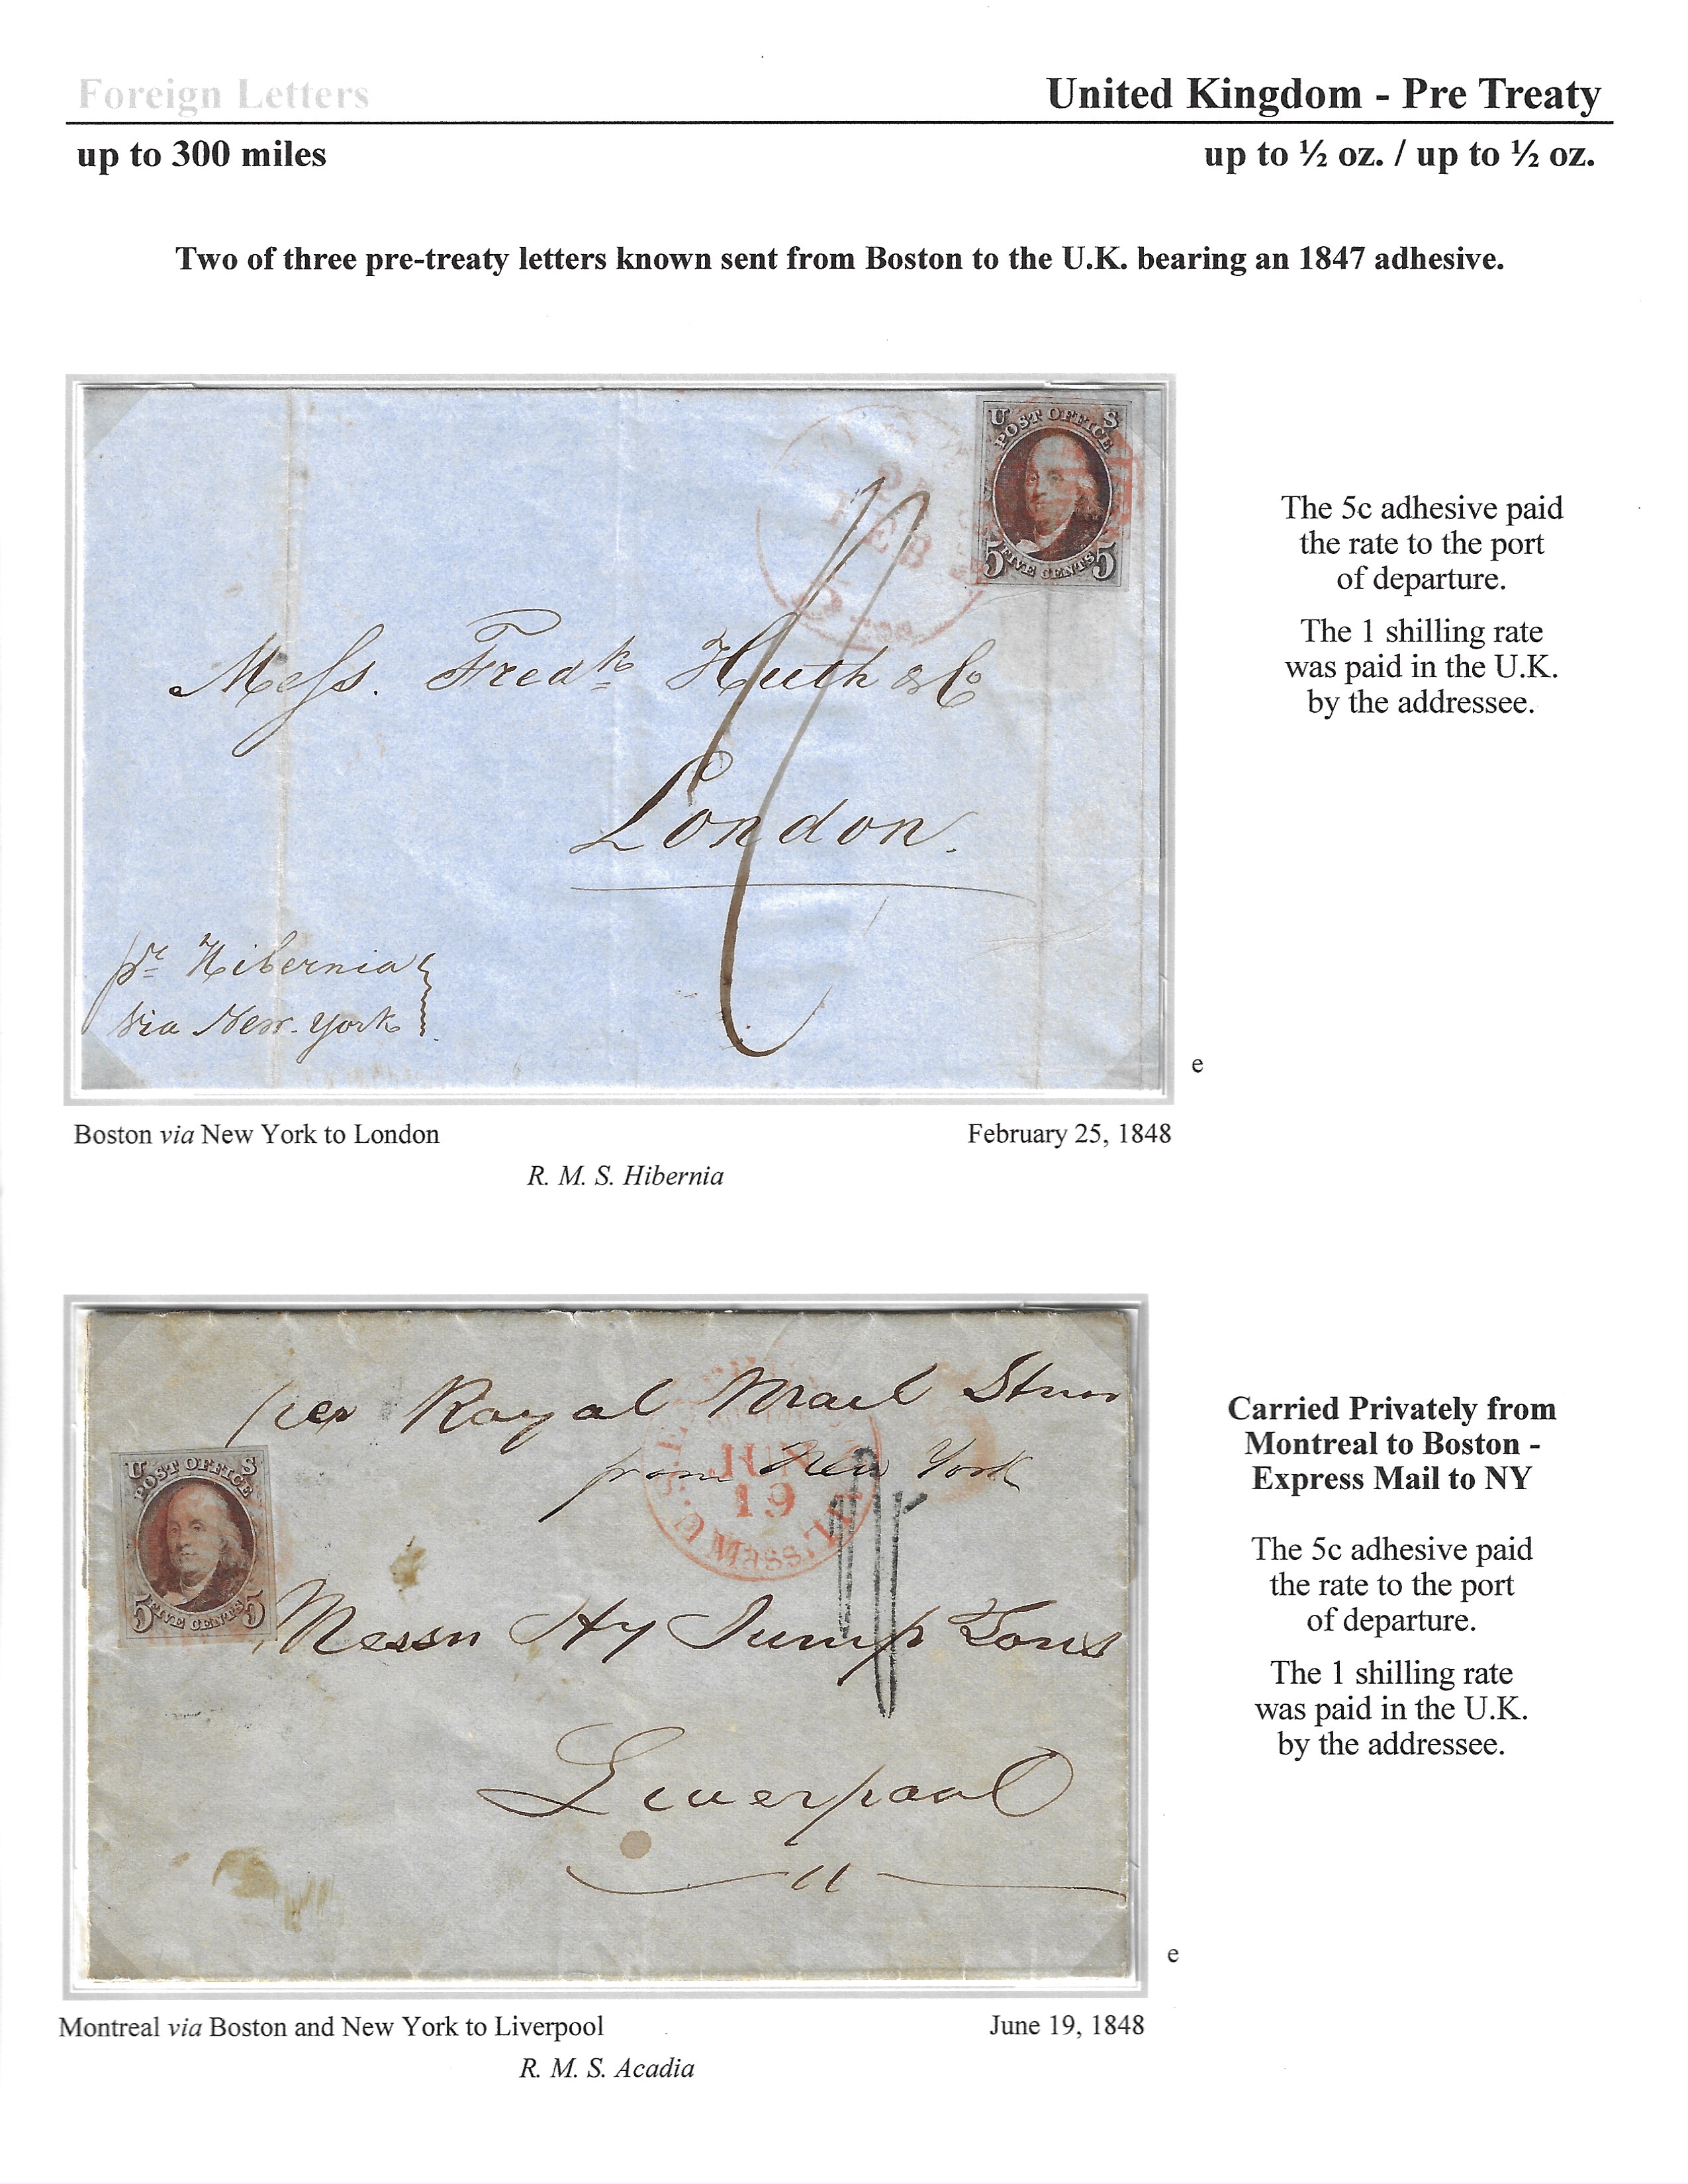 Foreign Letters
United Kingdom - Pre Treaty
up to 300 miles
up to ½ oz. / up to ½ oz.
Two of three pre-treaty letters known sent from Boston to the U.K. bearing an 1847 adhesive.
U S
POST OFFICE
5 FIVE CENTS 5
FEB
Mess. Fredk Huth & Co
London.
pr Hibernia
via New-York
The 5c adhesive paid
the rate to the port
of departure.
The 1 shilling rate
was paid in the U.K.
by the addressee.
e
Boston via New York to London
February 25, 1848
R. M. S. Hibernia
per Royal Mail Stmr
from New York
JUN
19
Mass.
U S
POST OFFICE
5 FIVE CENTS 5
Messrs Hy Jump Sons
Liverpool
Carried Privately from
Montreal to Boston -
Express Mail to NY
The 5c adhesive paid
the rate to the port
of departure.
The 1 shilling rate
was paid in the U.K.
by the addressee.
e
Montreal via Boston and New York to Liverpool
June 19, 1848
R. M. S. Acadia